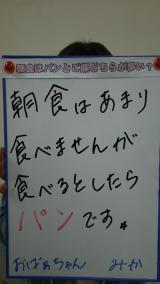 朝食はパンとご飯どちらが多い?
朝食はあまり
食べませんが
食べるとしたら
パンです。
おばあちゃん みか